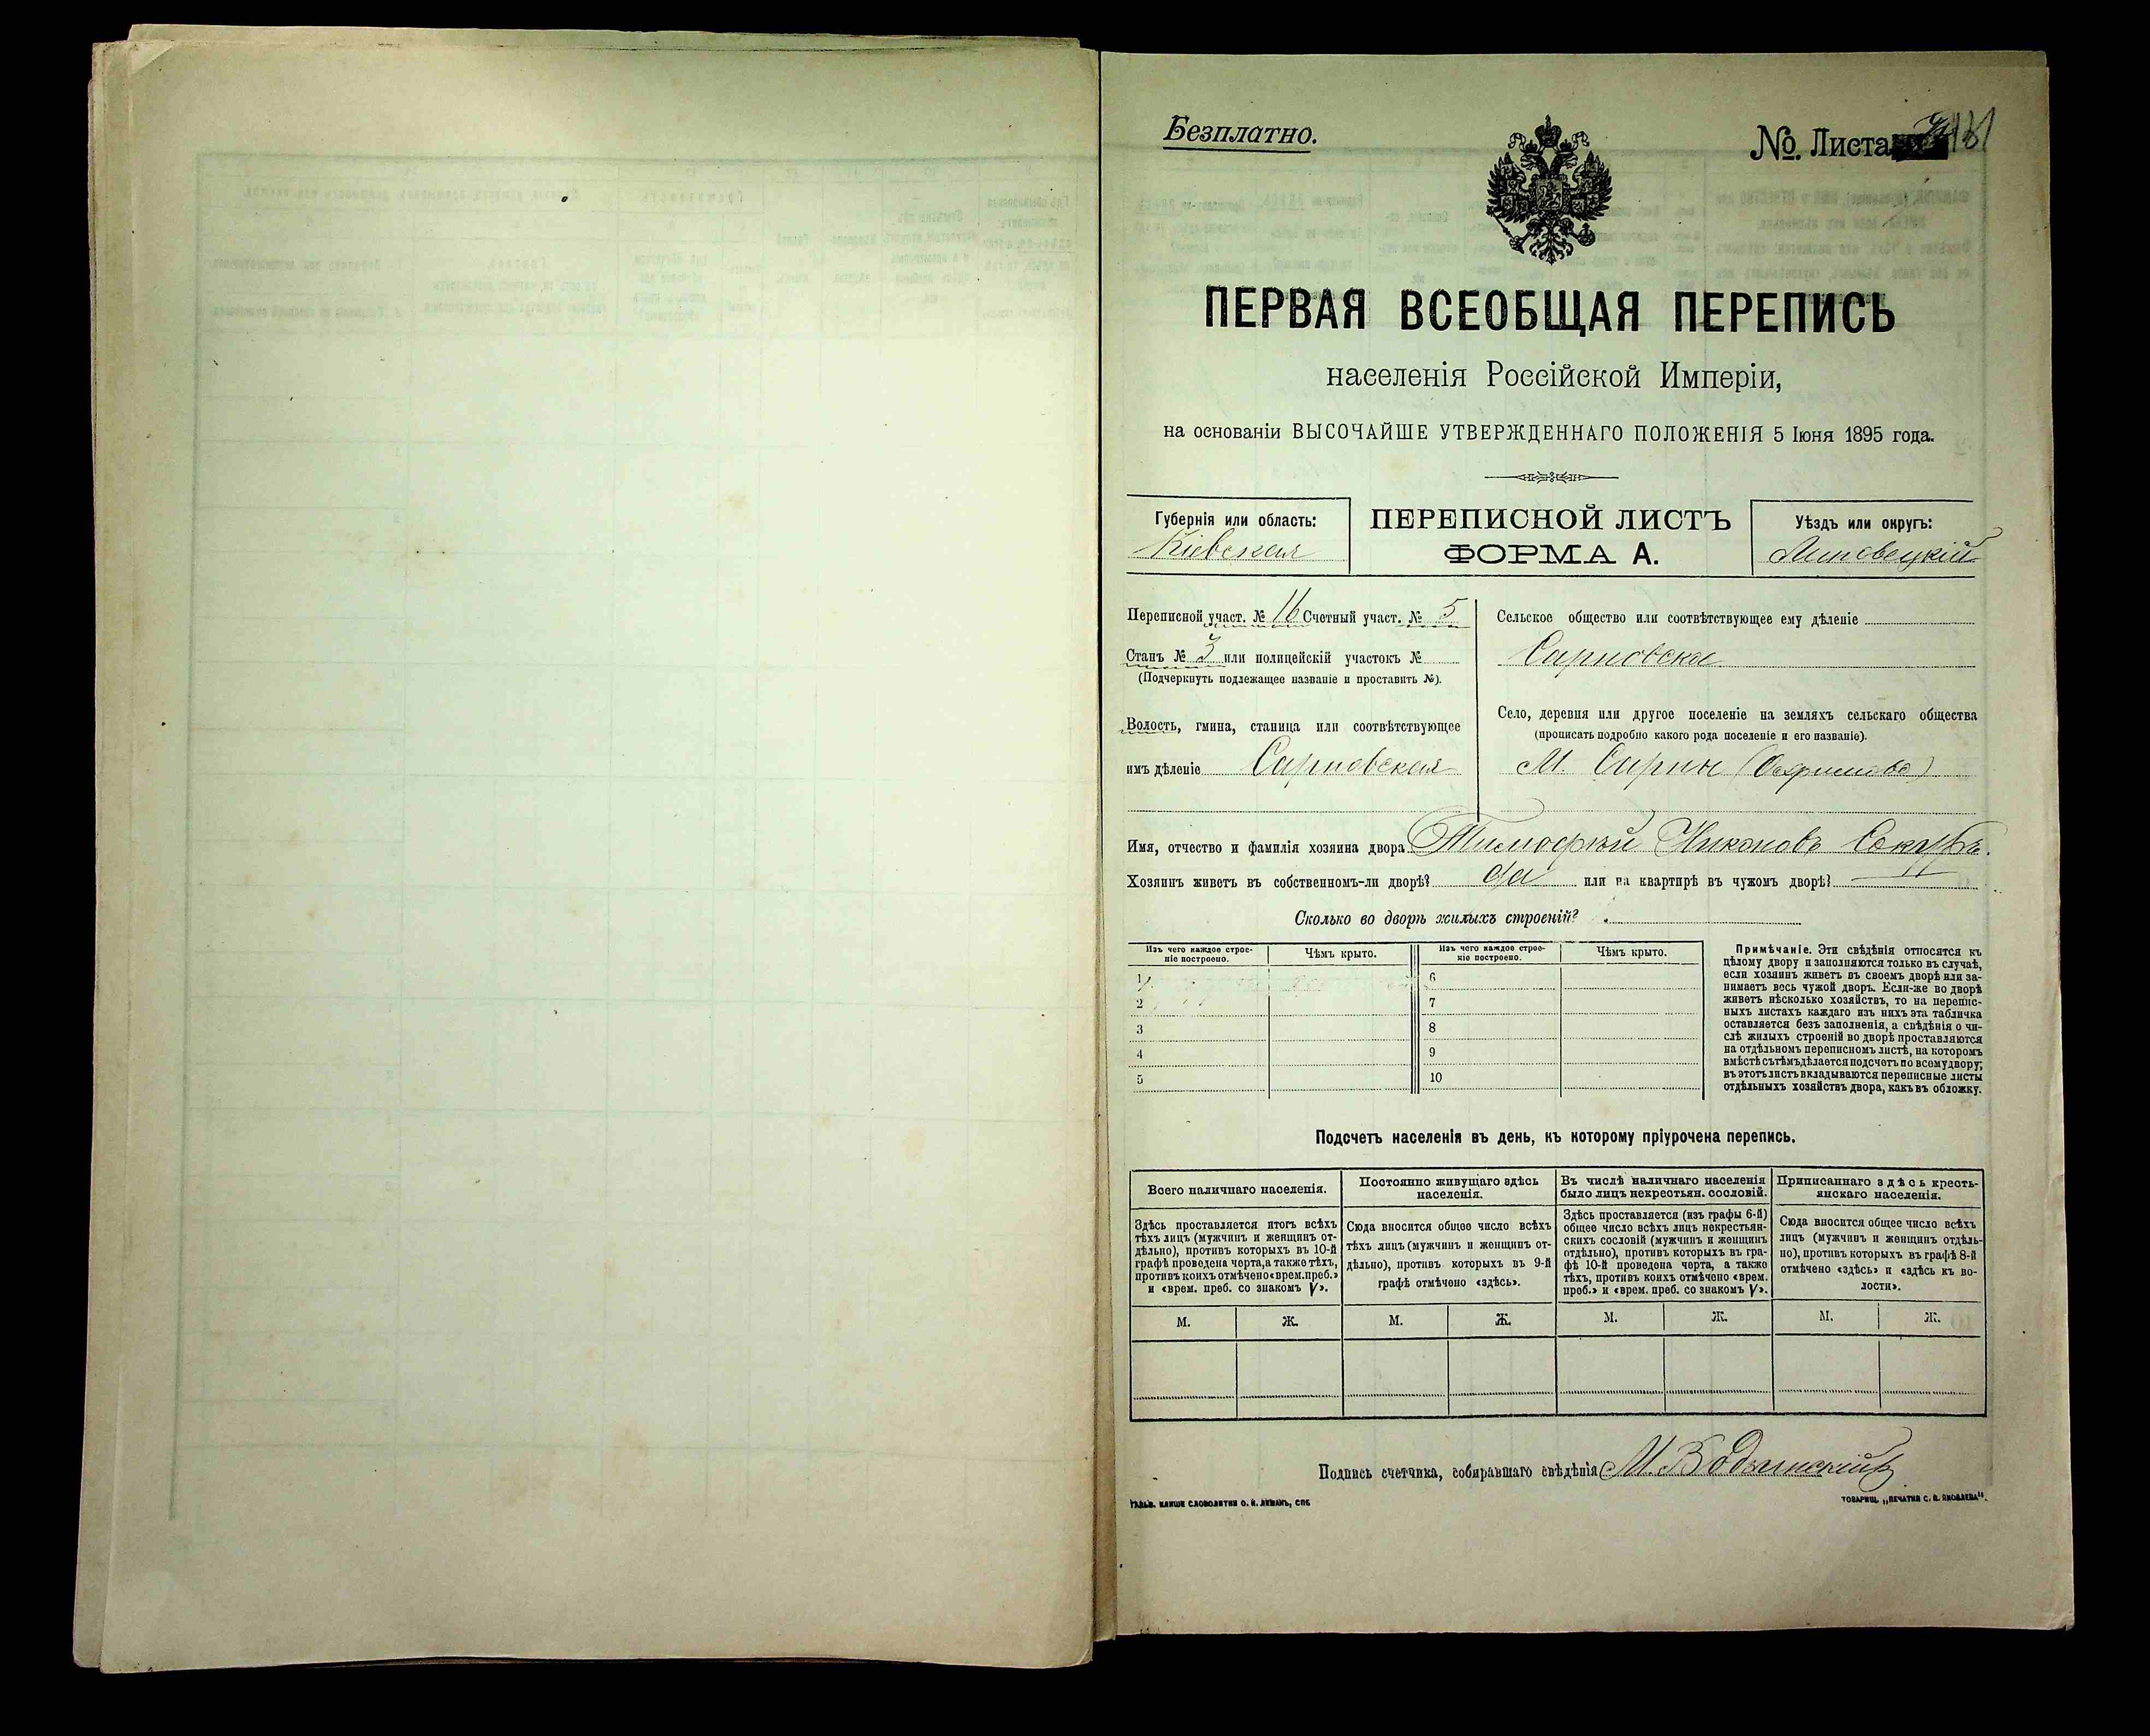 Безплатно.
№. Листа
ПЕРВАЯ ВСЕОБЩАЯ ПЕРЕПИСЬ
населенія Россійской Имперіи,
на основаніи ВЫСОЧАЙШЕ УТВЕРЖДЕННАГО ПОЛОЖЕНІЯ 5 Іюня 1895 года.
Губернія или область:
Кіевская
ПЕРЕПИСНОЙ ЛИСТЪ
ФОРМА А.
Уѣздъ или округъ:
Липовецкій
Переписной участ. № 16 Счетный участ. № 5
Станъ № 3 или полицейскій участокъ №
(Подчеркнуть подлежащее названіе и проставить №).
Волость, гмина, станица или соотвѣтствующее
имъ дѣленіе Сарновская
Сельское общество или соотвѣтствующее ему дѣленіе
Сарновское
Село, деревня или другое поселеніе на земляхъ сельскаго общества
(прописать подробно какого рода поселеніе и его названіе).
М. Сарны (Охримово)
Имя, отчество и фамилія хозяина двора Тимофѣй Никоновъ
Хозяинъ живетъ въ собственномъ-ли дворѣ? да или на квартирѣ въ чужомъ дворѣ?
Сколько во дворѣ жилыхъ строеній?
Изъ чего каждое строе-
ніе построено.
Чѣмъ крыто.
Изъ чего каждое строе-
ніе построено.
Чѣмъ крыто.
1 6
2 7
3 8
4 9
5 10
Примѣчаніе. Эти свѣдѣнія относятся къ
цѣлому двору и заполняются только въ случаѣ,
если хозяинъ живетъ въ своемъ дворѣ или за-
нимаетъ весь чужой дворъ. Если-же во дворѣ
живетъ нѣсколько хозяйствъ, то на перепис-
ныхъ листахъ каждаго изъ нихъ эта табличка
оставляется безъ заполненія, а свѣдѣнія о чи-
слѣ жилыхъ строеній во дворѣ проставляются
на отдѣльномъ переписномъ листѣ, на которомъ
вмѣстѣ съ тѣмъ дѣлается подсчетъ по всему двору;
въ этотъ листъ вкладываются переписные листы
отдѣльныхъ хозяйствъ двора, какъ въ обложку.
Подсчетъ населенія въ день, къ которому пріурочена перепись.
Всего наличнаго населенія.
Здѣсь проставляется итогъ всѣхъ
тѣхъ лицъ (мужчинъ и женщинъ от-
дѣльно), противъ которыхъ въ 10-й
графѣ проведена черта, а также тѣхъ,
противъ коихъ отмѣчено «врем. преб.»
и «врем. преб. со знакомъ V».
Постоянно живущаго здѣсь
населенія.
Сюда вносится общее число всѣхъ
тѣхъ лицъ (мужчинъ и женщинъ от-
дѣльно), противъ которыхъ въ 9-й
графѣ отмѣчено «здѣсь».
Въ числѣ наличнаго населенія
было лицъ некрестьян. сословій.
Здѣсь проставляется (изъ графы 6-й)
общее число всѣхъ лицъ некрестьян-
скихъ сословій (мужчинъ и женщинъ
отдѣльно), противъ которыхъ въ гра-
фѣ 10-й проведена черта, а также
тѣхъ, противъ коихъ отмѣчено «врем.
преб.» и «врем. преб. со знакомъ V».
Приписаннаго здѣсь кресть-
янскаго населенія.
Сюда вносится общее число всѣхъ
лицъ (мужчинъ и женщинъ отдѣль-
но), противъ которыхъ въ графѣ 8-й
отмѣчено «здѣсь» и «здѣсь къ во-
лости».
М. Ж. М. Ж. М. Ж. М. Ж.
Подпись счетчика, собиравшаго свѣдѣнія М.
ГАЛЬВ. КЛИШЕ СЛОВОЛИТНИ О. И. ЛЕМАНЪ, СПБ
ТОВАРИЩ. „ПЕЧАТНЯ С. П. ЯКОВЛЕВА".